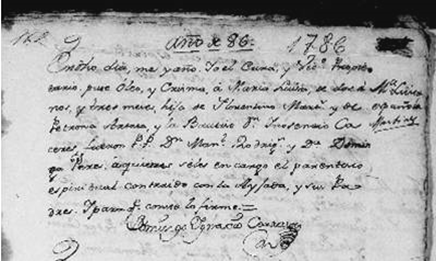 año de 86. 1786
En dho dia, mes y año. Yo el Cura, y Vic.º Propie
tario, puse Oleo, y Crisma, á Maria Luisa, de dos a
ños, y tres meses, hija de Florentino Mart.s y de española
Petrona y la Bautizó D.n Inosencio Ca Martinez
ceres fueron P.P. D.n Man.l Rodrig.z y D.a Domin
ga Peres, aquienes seles encargo el parentesco
espiritual contraido con la Ahijada, y sus Pa
dres. Y para q.e conste lo firmé =
Domingo Ygnacio